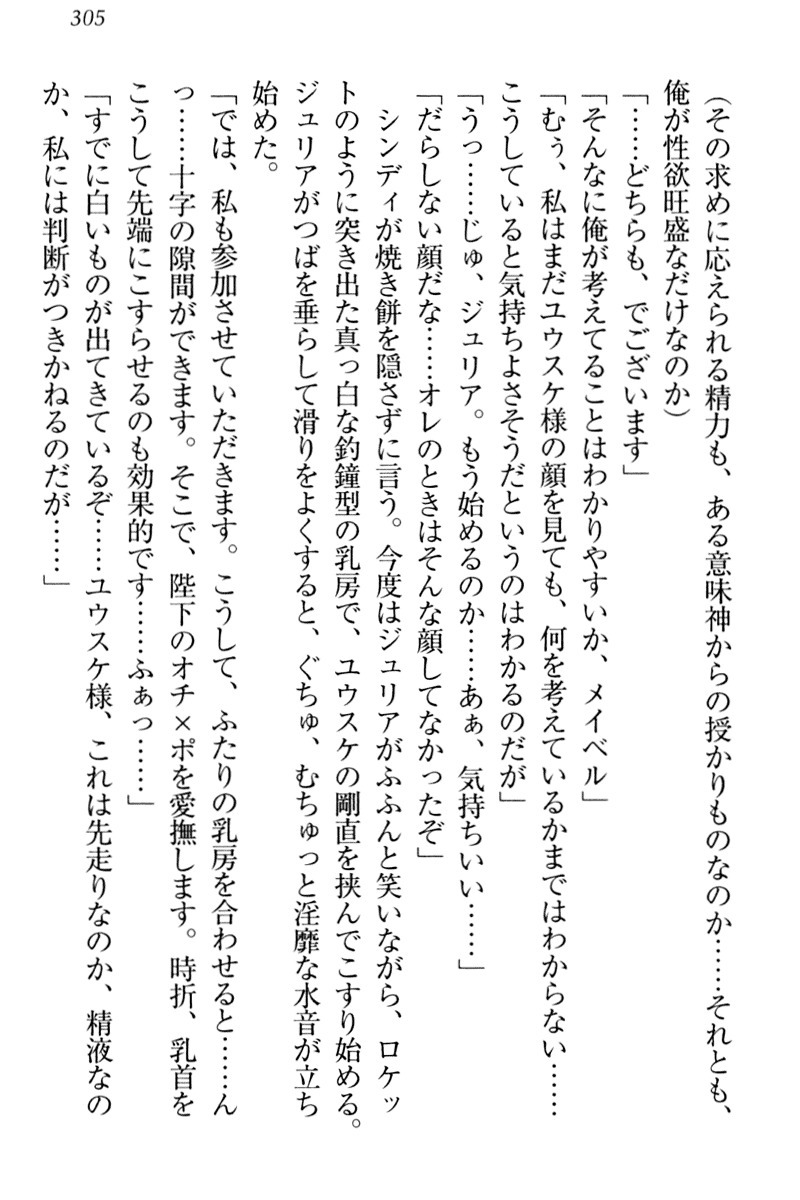 305
（その求めに応えられる精力も、ある意味神からの授かりものなのか……それとも、
俺が性欲旺盛なだけなのか）
「……どちらも、でございます」
「そんなに俺が考えてることはわかりやすいか、メイベル」
「むぅ、私はまだユウスケ様の顔を見ても、何を考えているかまではわからない……
こうしていると気持ちよさそうだというのはわかるのだが」
「うっ……じゅ、ジュリア。もう始めるのか……あぁ、気持ちいい……」
「だらしない顔だな……オレのときはそんな顔してなかったぞ」
　シンディが焼き餅を隠さずに言う。今度はジュリアがふふんと笑いながら、ロケッ
トのように突き出た真っ白な釣鐘型の乳房で、ユウスケの剛直を挟んでこすり始める。
ジュリアがつばを垂らして滑りをよくすると、ぐちゅ、むちゅっと淫靡な水音が立ち
始めた。
「では、私も参加させていただきます。こうして、ふたりの乳房を合わせると……ん
っ……十字の隙間ができます。そこで、陛下のオチ×ポを愛撫します。時折、乳首を
こうして先端にこすらせるのも効果的です……ふぁっ……」
「すでに白いものが出てきているぞ……ユウスケ様、これは先走りなのか、精液なの
か、私には判断がつきかねるのだが……」